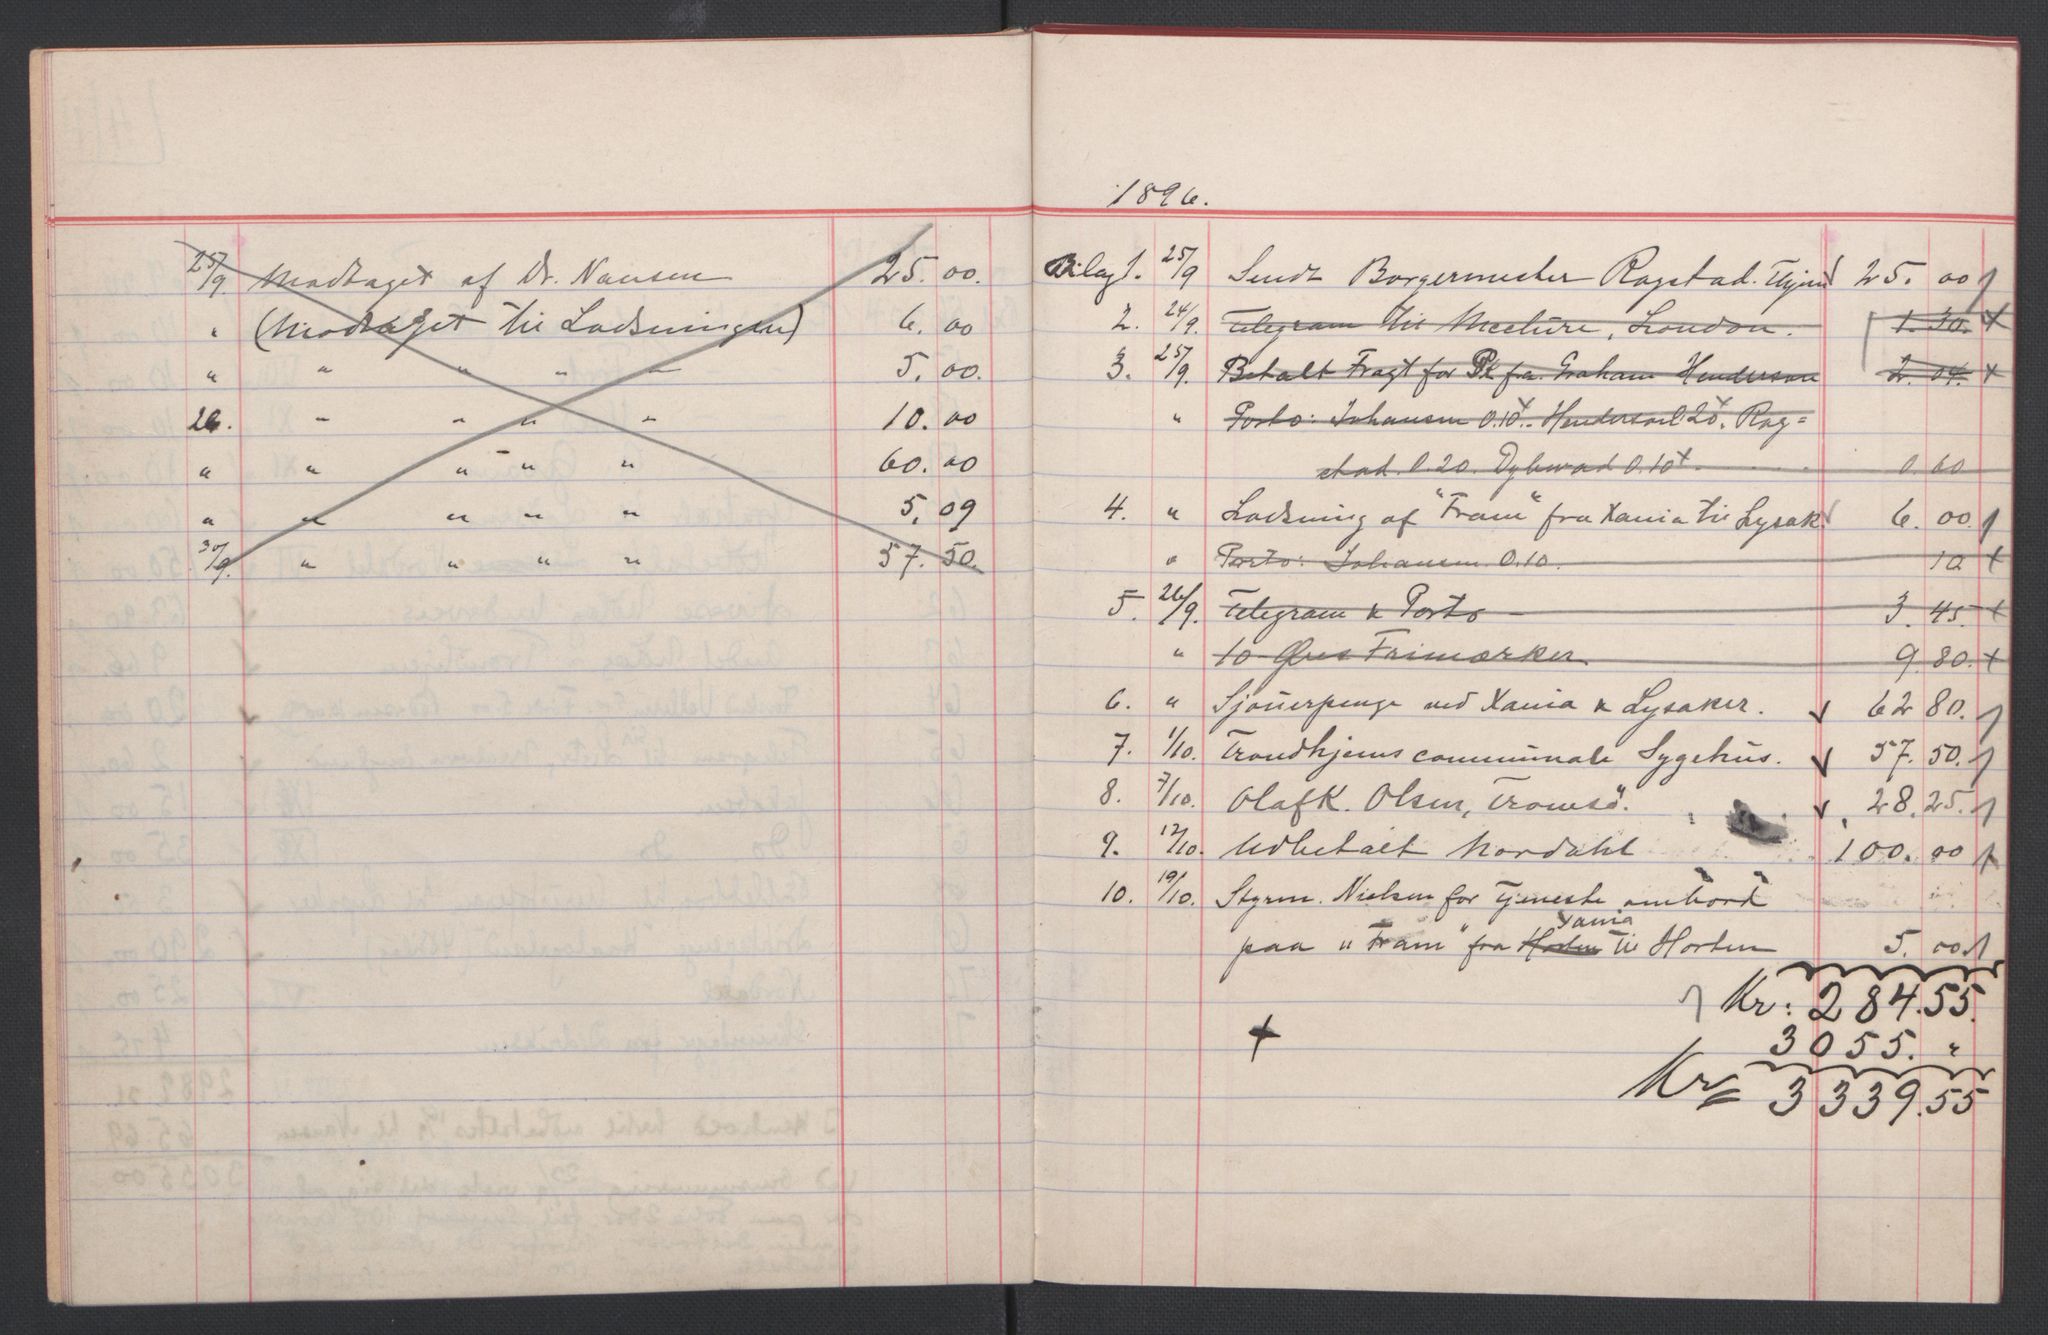 25/9. Modtaget af Dr. Nansen 25.00.
" (Modtaget til Lodsningen) 6.00
" " " " " 5.00.
26. " " " " 10.00
" " " " " 60.00
" " " " " 5.09
30/9. " " " " 57.50.
1896.
Bilag 1. 25/9 Sendt Borgermester Rogstad. Thjem 25.00
2. 24/9. Telegram til McClure, London. 1.30. x
3. 25/9. Betalt Fragt for Pk fra Graham Henderson 2.04. x
" Porto: Johansen 0.10x. Henderson 0.20x. Rog=
stad 0.20. Dybwad 0.10x 0.60
4. " Lodsning af "Fram" fra Xania til Lysak. 6.00.
" Porto: Johansen 0.10. 10 x
5. 26/9. Telegram & Porto 3.45. x
" 10 Øres Frimærker 9.80. x
6. " Sjouerpenge ved Xania & Lysaker. 62.80.
7. 1/10. Trondhjems communale Sygehus. 57.50.
8. 7/10. Olaf K. Olsen, Tromsö. 28.25.
9. 12/10. Udbetalt Nordahl 100.00
10. 19/10. Styrm. Nielsen for Tjeneste ombord
Xania
paa "Fram" fra Horten til Horten 5.00
Kr: 284.55.
+ 3055. "
Kr 3339.55